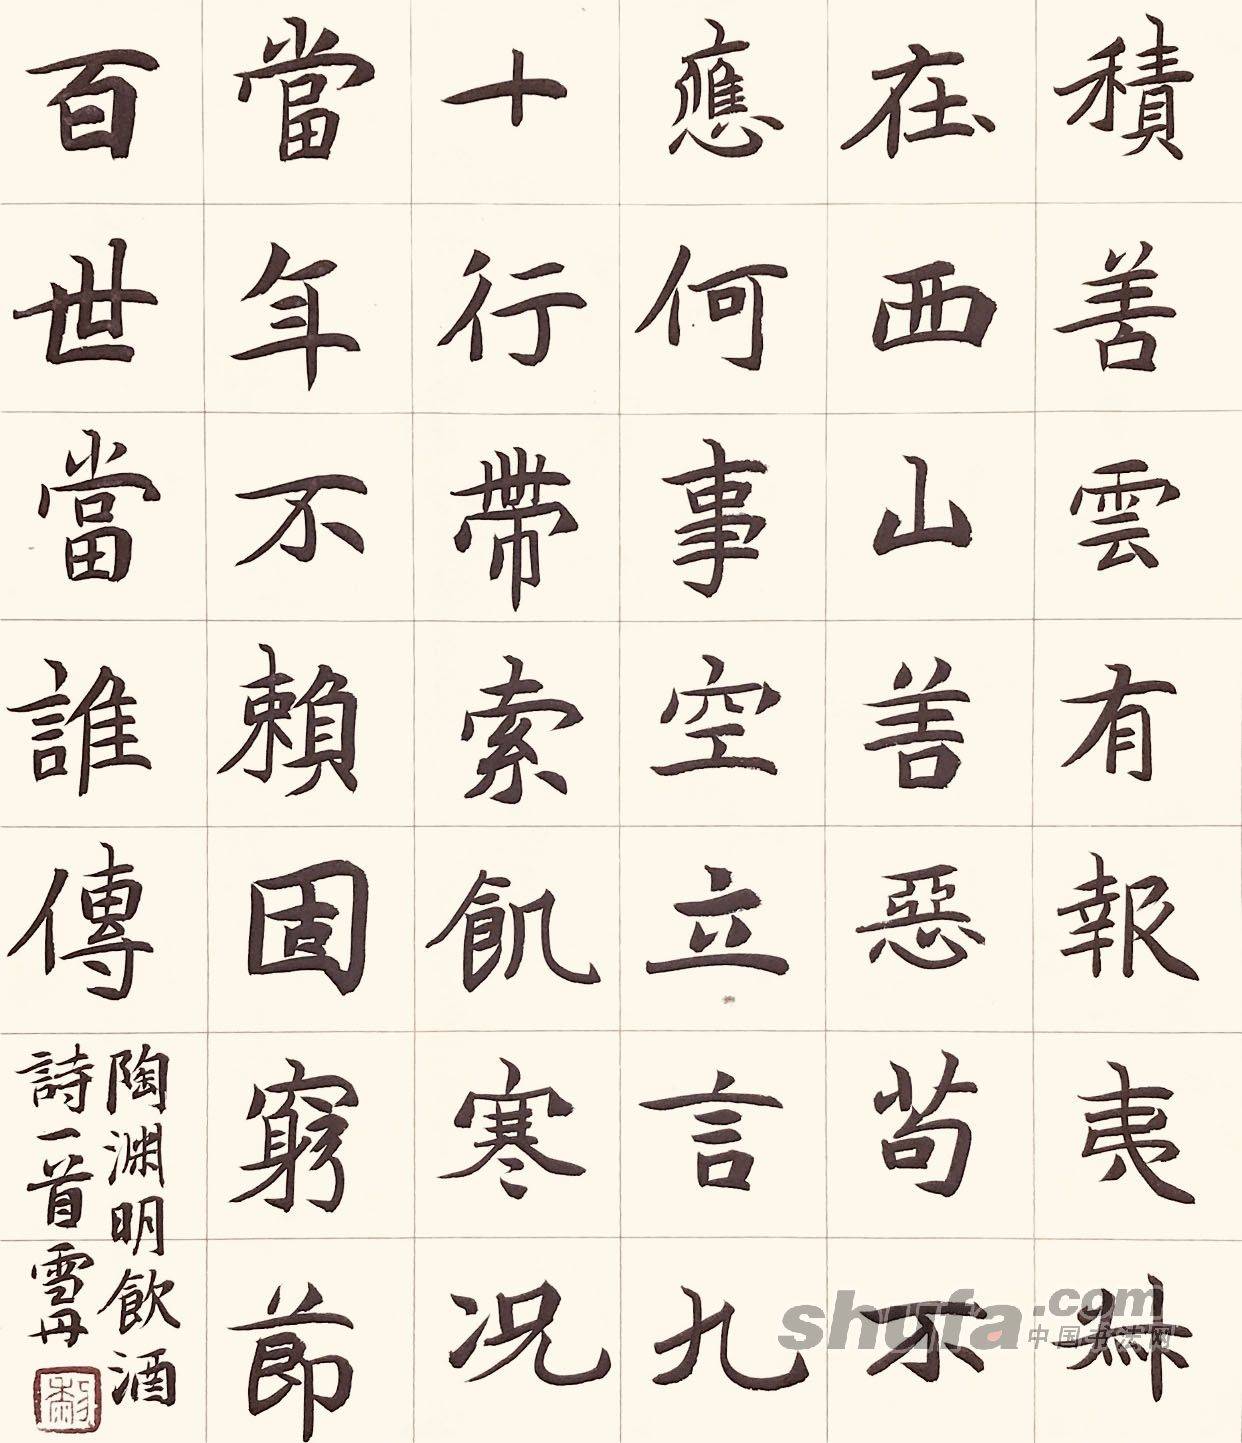 積善雲有報夷叔
在西山善惡苟不
應何事空立言九
十行帶索飢寒况
當年不賴固窮節
百世當誰傳
陶渊明飲酒
詩一首雪丹
shufa.com
中国书法网